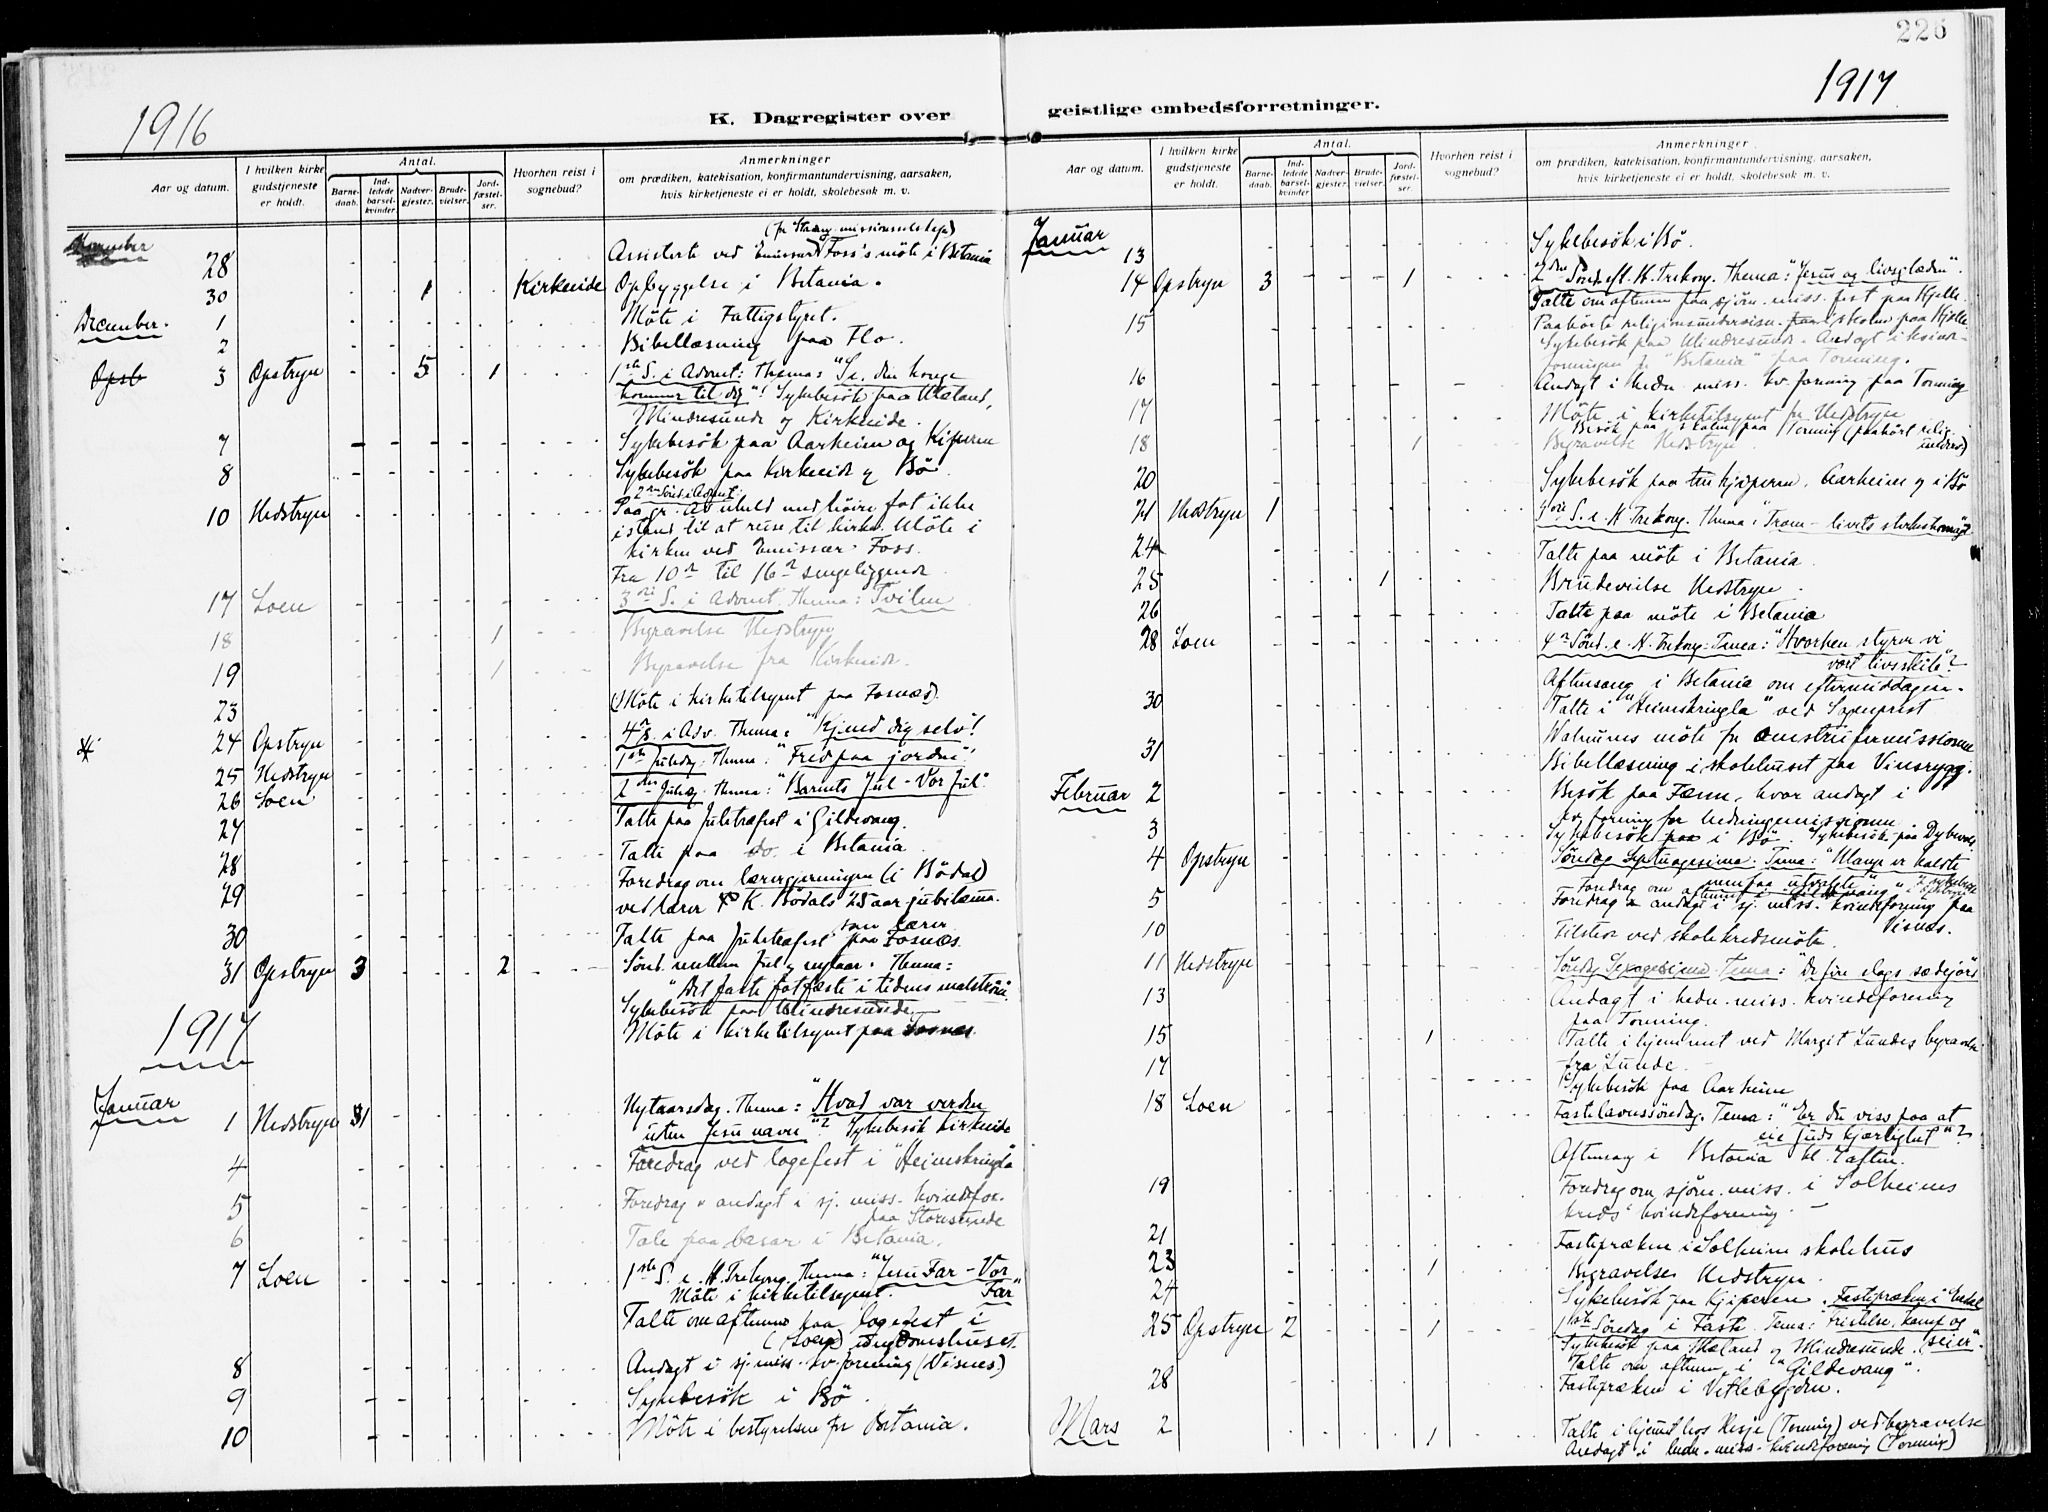 226
1916
1917
K. Dagregister over geistlige embedsforretninger.
Aar og datum. I hvilken kirke gudstjeneste er holdt. Antal. Barnedaab. Indledede barselkvinder Nadvergjester. Brudevielser. Jordfæstelser. Hvorhen reist i sognebud? Anmerkninger om prædiken, katekisation, konfirmantundervisning, aarsaken, hvis kirketjeneste ei er holdt, skolebesøk m. v.
November
(for missionsselskap)
28 Assisterte ved Emissær Foss's möte i Betania
30 1 Kirkeide Opbyggelse i Betania.
December. 1 Möte i Fattigstyret.
2 Bibellæsning paa Flo.
3 Opstryn 5 1 1ste S. i Advent: Thema: "Se, din konge
kommer til dig"! Sykebesök paa Mæland,
Mindresunde og Kirkeide.
7 Sykebesök paa Aarheim og Kjiperen
8 Sykebesök paa Kirkeide og Bö
2den Sönd. i Advent.
10 Nedstryn Paa gr. av uheld med höire fot ikke
istand til at reise til kirke. Möte i
kirken ved Emissær Foss.
Fra 10de til 16de sengeliggende
17 Loen 3die S. i Advent. Thema: Tvilen
18 1 Begravelse Nedstryn
19 1 Begravelse fra Kirkeide.
23 Möte i kirketilsynet paa Fosnæs.
24 Opstryn 4de S. i Adv. Thema: "Kjend dig selv!
25 Nedstryn 1ste Juledag. Thema: "Fred paa jorden"!
26 Loen 2den Juledag. Thema: "Barnets Jul - Vor Jul".
27 Talte paa Juletræfest i Gildevang.
28 Talte paa do. i Betania
29 Foredrag om lærergjerningen (i Bödal)
ved lærer K. Bödals 25 aar jubilæum.
som lærer
30 Talte paa Juletræfest paa Fosnæs.
31 Opstryn 3 2 Sönd. mellem Jul og nytaar. Thema:
"Det faste fotfæste i tidens malström.
Sykebesök paa Mindresunde
Möte i kirketilsynet paa Fosnæs.
1917
Januar 1 Nedstryn 1 Nytaarsdag. Thema: "Hvad var verden
uten Jesu navn"? Sykebesök Kirkeide
4 Foredrag ved logefest i "Heimskringla
5 Foredrag og andagt i sj. miss. kvindefor.
paa Storesunde
6 Tale paa basar i Betania.
7 Loen 1ste S. e. H. Trekong. Thema: "Jesu Far - Vor
Möte i kirketilsynet. Far"
Talte om aftenen paa logefest i
(Loen) ungdomshuset.
8 Andagt i sj. miss. kv. forening (Visnes)
9 Sykebesök i Bö.
10 Möte i bestyrelsen for Betania.
Aar og datum. I hvilken kirke gudstjeneste er holdt. Antal. Barnedaab. Indledede barselkvinder Nadvergjester. Brudevielser. Jordfæstelser. Hvorhen reist i sognebud? Anmerkninger om prædiken, katekisation, konfirmantundervisning, aarsaken, hvis kirketjeneste ei er holdt, skolebesøk m. v.
Januar 13 Sykebesök i Bö.
14 Opstryn 3 1 2den Sönd. eft. H. Trekong. Thema: "Jesus og livsglæden".
Talte om aftenen paa sjöm. miss. fest paa Hjelle.
15 Paahörte religionsundervisn. i skolen paa Hjelle.
Sykebesök paa Mindresunde. Andagt i kvinde-
foreningen for "Betania" paa Tonning.
16 Andagt i hedn. miss. kv. forening paa Tonning
17 Möte i kirketilsynet for Nedstryn
Besök paa skolen paa Tonning (paahört relig.
18 1 Begravelse Nedstryn. underv.)
20 Sykebesök paa Kjiperen, Aarheim og i Bö
21 Nedstryn 1 3die S. e. H. Trekong. Thema: "Troen - livets styrkekraft
24 Talte paa möte i Betania
25 1 Brudevielse Nedstryn.
26 Talte paa möte i Betania
28 Loen 4de Sönd. e. H. Trekong. Tema: "Hvorhen styrer vi
vort livsskib"?
Aftensang i Betania om eftermiddagen.
30 Talte i "Heimskringla" ved Sogneprest
Walnums möte for
31 Bibellæsning i skolehuset paa Vinsrygg.
Februar 2 Besök paa Færn, hvor andagt i
kv. forening for hedningemissionen
3 Sykebesök i Bö. Sykebesök paa Dybevold
4 Opstryn Söndag Septuagesima. Tema: "Mange er kaldte
men faa utvalgte" og sykebesök
Foredrag om aftenen i Gildevang
5 Foredrag og andagt i sj. miss. kvindeforening paa
Visnes.
10 Tilstede ved skolekredsmöte.
11 Nedstryn Söndag Sexagesima. Tema: "De fire slags sædejörd
13 Andagt i hedn. miss. kvindeforening
paa Tonning.
15 1 Talte i hjemmet ved Margit Lundes begravelse
fra Lunde.
17 Sykebesök paa Aarheim
18 Loen Fastelavnssöndag. Tema: "Er du viss paa at
eie Guds kjærlighet"?
Aftensang i Betania kl. 7 aften.
19 Foredrag om sjöm. miss. i Solheims
kreds' kvindeforening.
21 Fasteprækn i Solheim skolehus
23 1 Begravelse Nedstryn.
24 Sykebesök paa Kjiperen. Fasteprækn i
25 Opstryn 2 1 1ste Söndag i Faste. Tema: Fristelse, kamp og
Sykebesök paa Mæland og Mindresunde. seier".
Talte om aftenen i "Gildevang".
28 Fasteprækn i Vetlebygden.
Mars 2 1 Talte i hjemmet hos Hesje (Tonning) ved begravelse
Andagt i hedn. miss. kvindeforening (Tonning)